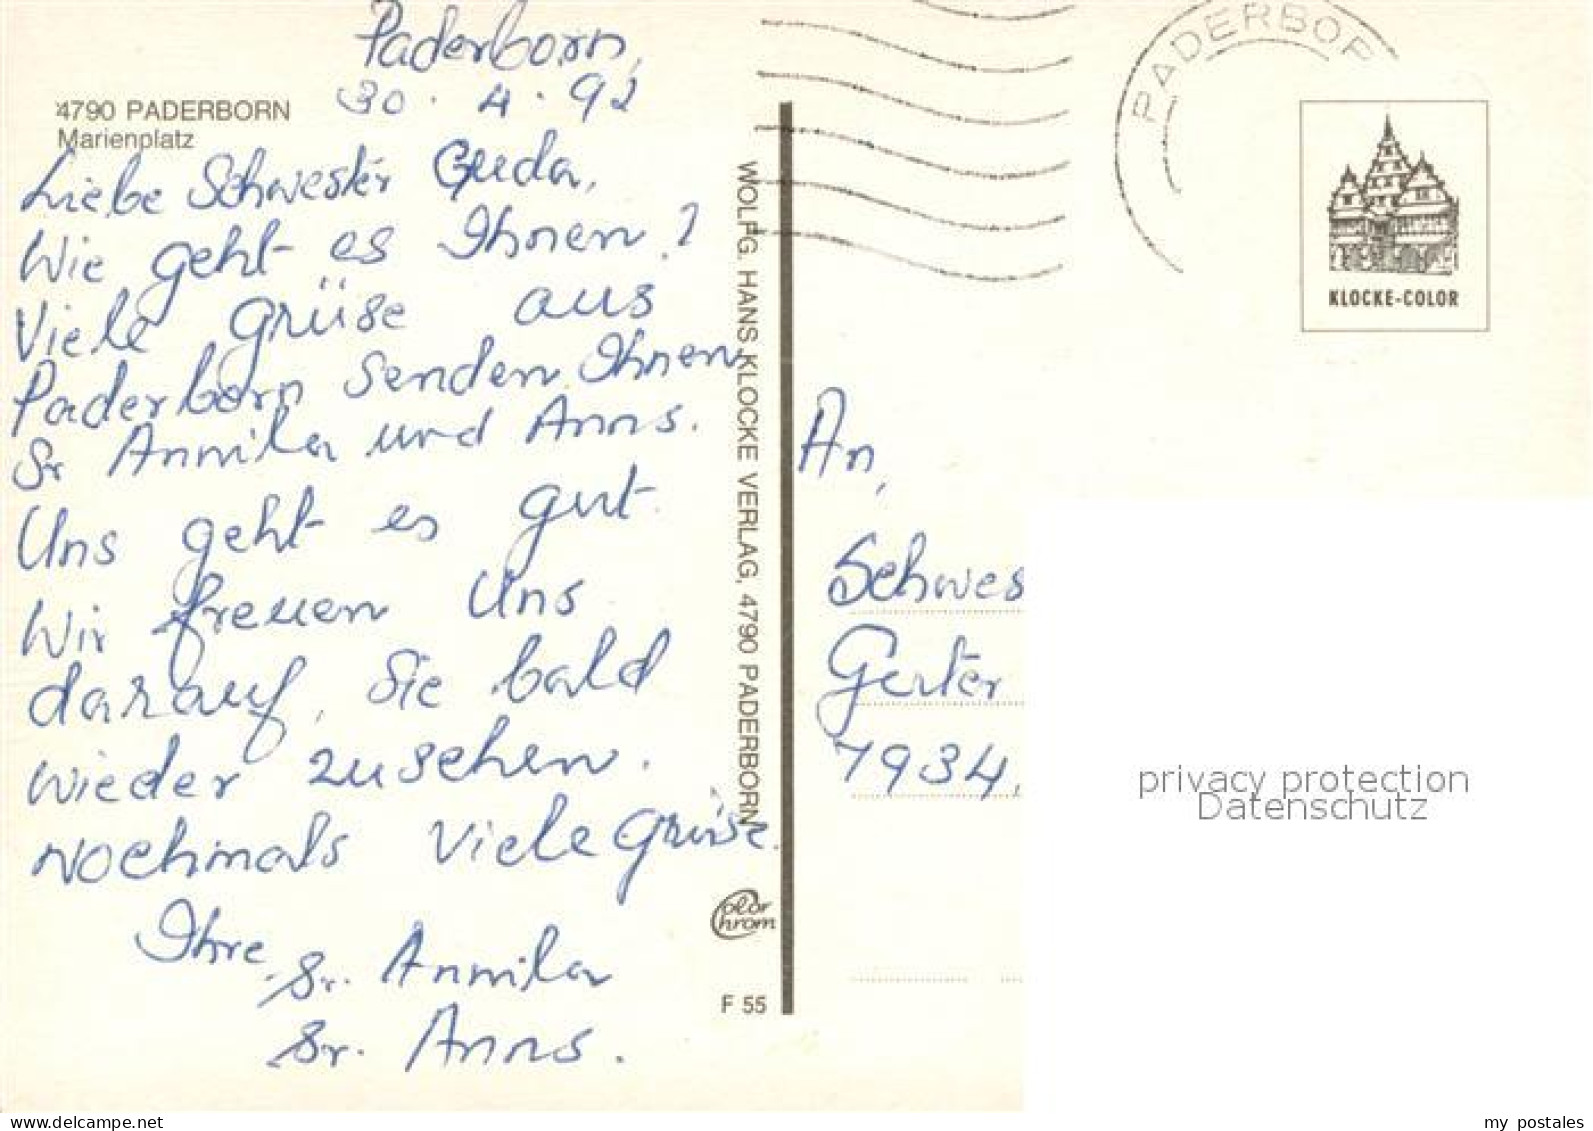 Paderborn,
30. 4. 92
4790 PADERBORN
Marienplatz
Liebe Schwester Guda,
Wie geht es Ihnen?
Viele Grüse aus
Paderborn senden Ihnen
Sr Annila und Anns.
Uns geht es gut.
Wir freuen Uns
darauf, Sie bald
wieder zusehen.
Nochmals Viele Grüse.
Ihre,
Sr. Annila
Sr. Anns.
WOLFG. HANS KLOCKE VERLAG, 4790 PADERBORN
Color Chrom
F 55
PADERBOR
KLOCKE-COLOR
An,
Schwes
7934,
privacy protection
Datenschutz
delcampe.net
my_postales